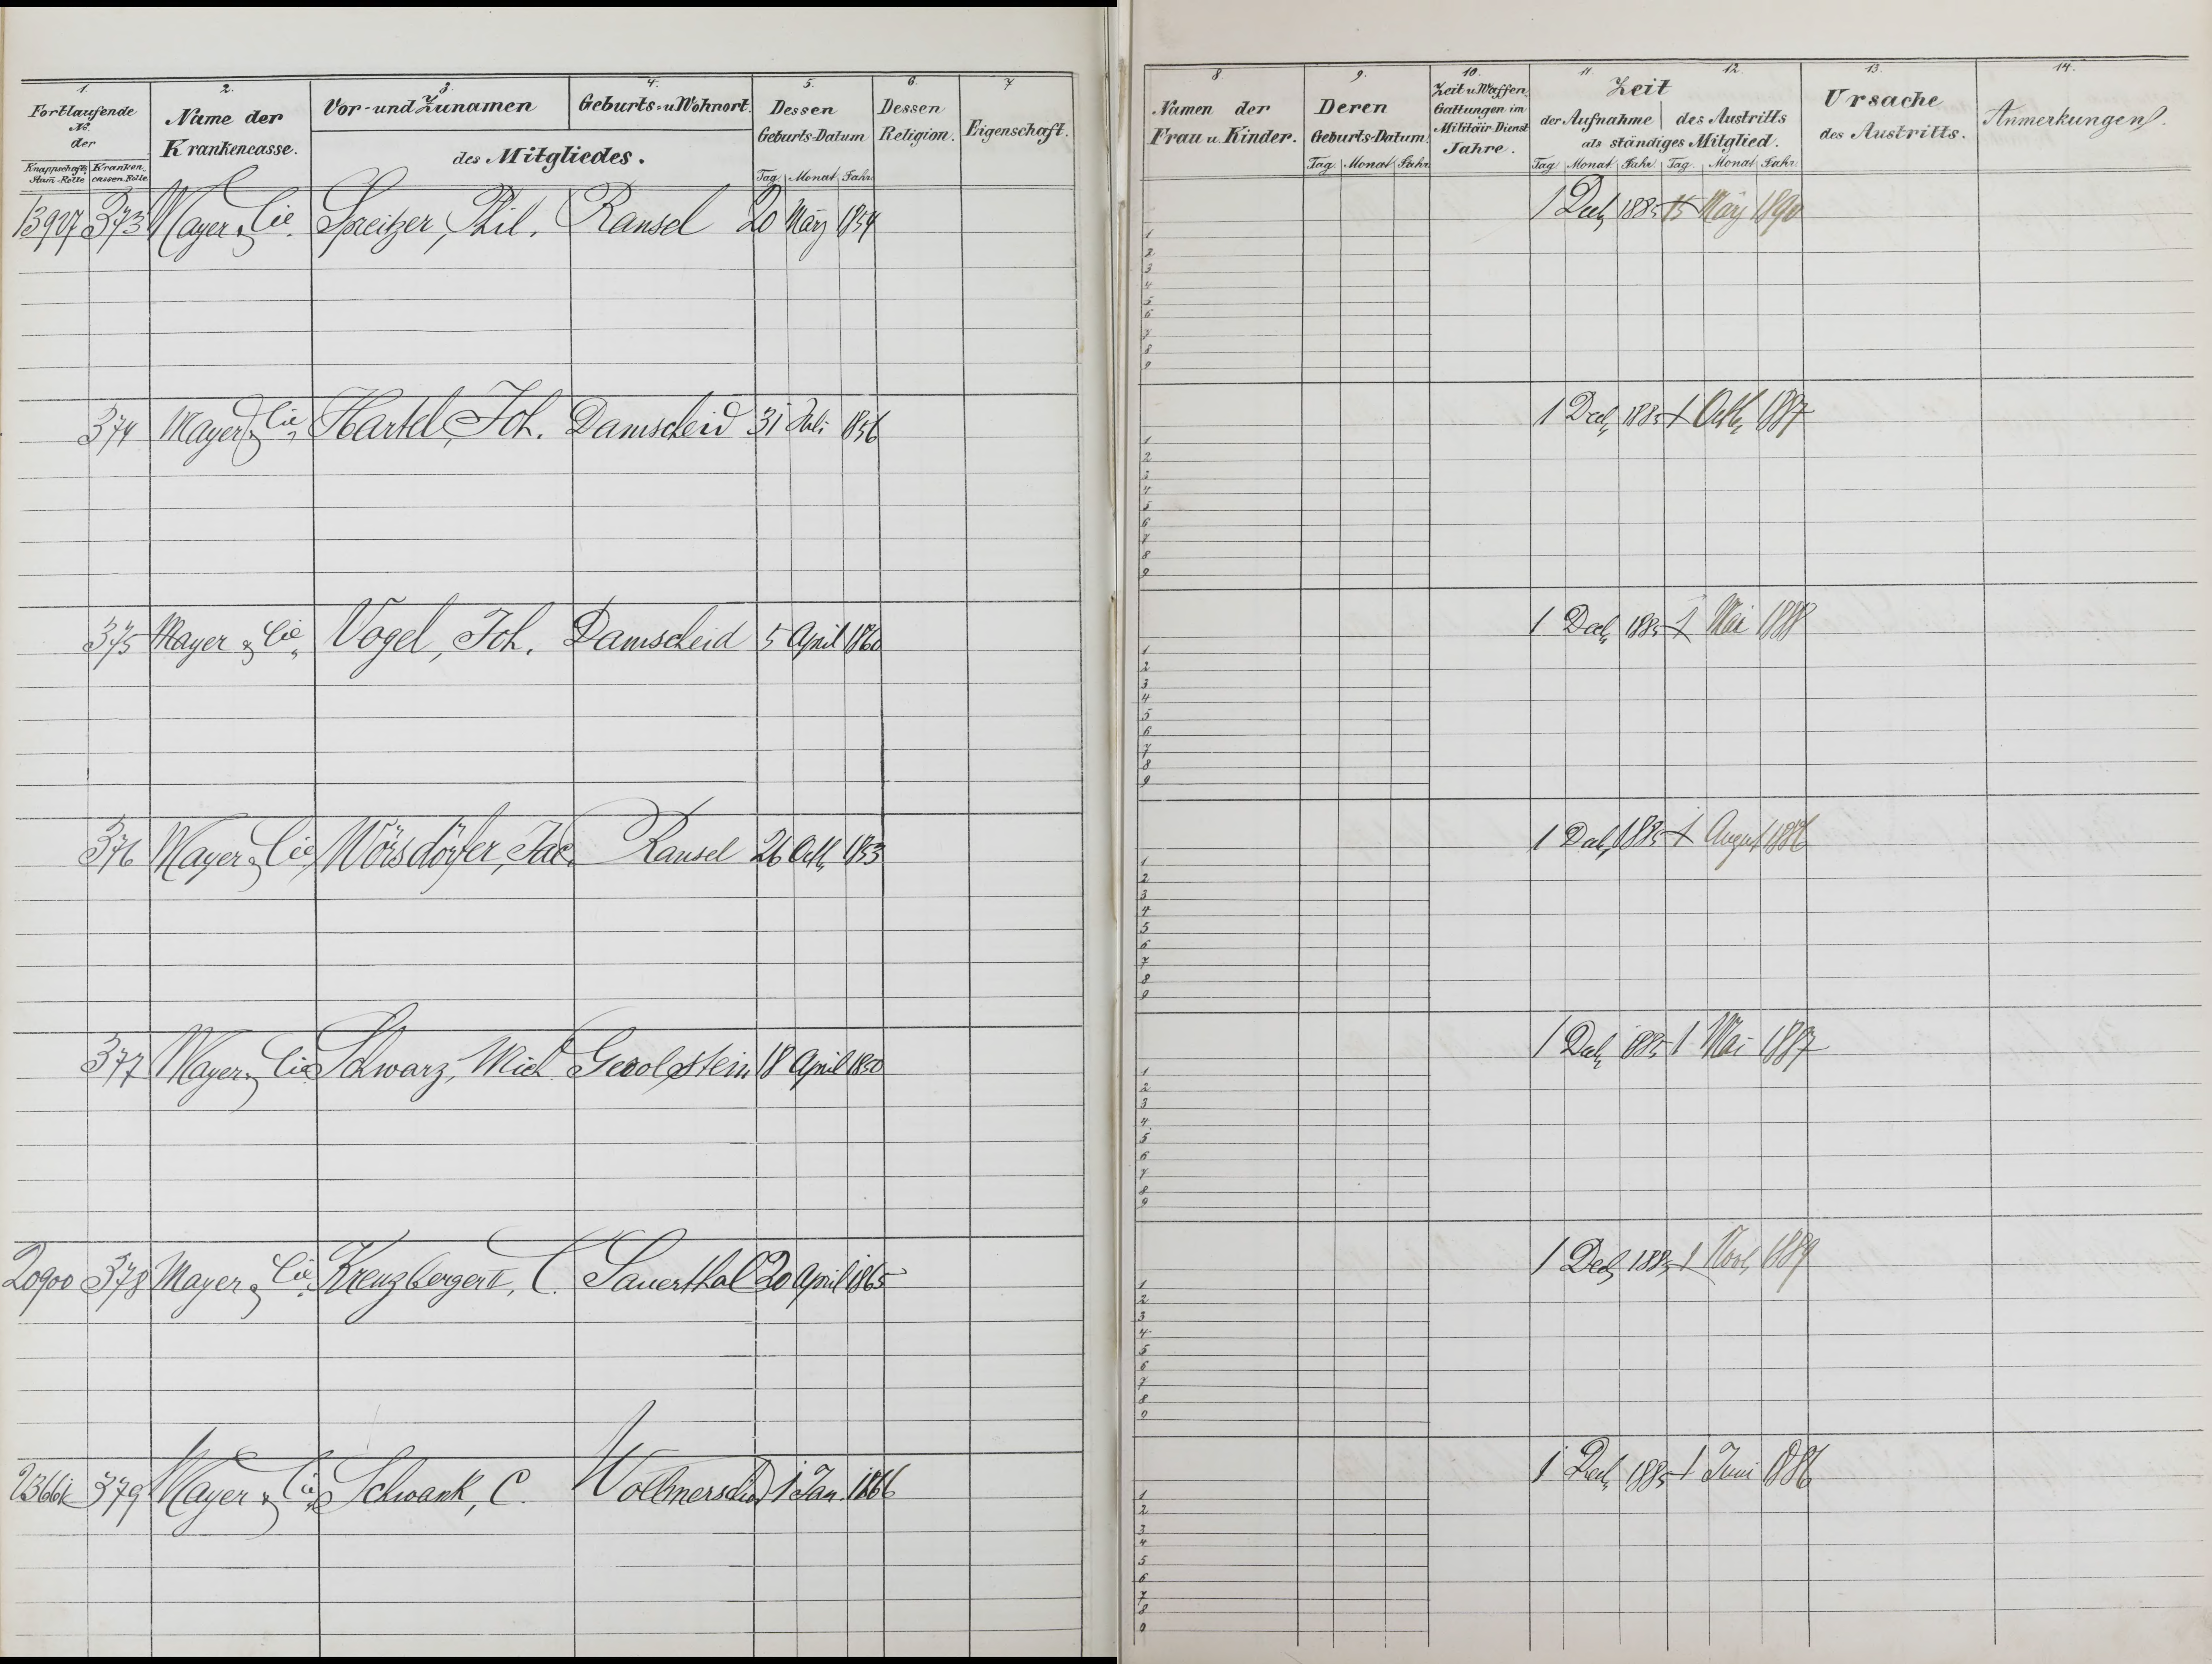 1. 2. 3. 4. 5. 6. 7
Fortlaufende No. der
Knappschafts Stam-Rolle
Kranken-cassen Rolle
Name der Krankencasse.
Vor- und Zunamen
Geburts- u Wohnort.
des Mitgliedes.
Dessen Geburts-Datum
Tag Monat Jahr
Dessen Religion.
Eigenschaft.
13927 373 Mayer & Cie. Spreitzer, Phil. Ransel 20 März 1854
374 Mayer & Cie. Hartel, Joh. Damscheid 31 Juli 1856
375 Mayer & Cie. Vogel, Joh. Damscheid 5 April 1860
376 Mayer & Cie. Wörsdörfer, Jac. Ransel 26 Octb. 1853
377 Mayer & Cie Schwarz, Mich Geroolstein 18 April 1850
20900 378 Mayer & Cie. Kreuzberger II, C. Sauerthal 20 April 1865
379 Mayer & Cie Schwank, C. Wollmerscheid 1 Jan. 1866
8. 9. 10. 11. 12. 13. 14.
Namen der Frau u. Kinder.
Deren Geburts-Datum.
Tag Monat Jahr
Zeit u. Waffen Gattungen im Militäir-Dienst Jahre.
Zeit
der Aufnahme des Austritts
als ständiges Mitglied.
Tag Monat Jahr Tag Monat Jahr
Ursache des Austritts.
Anmerkungen.
1 Decb. 1885 15 März 1890
1
2
3
4
5
6
7
8
9
1 Decb. 1885 1 Octb. 1887
1
2
3
4
5
6
7
8
9
1 Decb. 1885 1 Mai 1888
1
2
3
4
5
6
7
8
9
1 Decb. 1885 1 August 1886
1
2
3
4
5
6
7
8
9
1 Decb. 1885 1 Mai 1887
1
2
3
4
5
6
7
8
9
1 Decb. 1885 1 Novb. 1889
1
2
3
4
5
6
7
8
9
1 Decb. 1885 1 Juni 1886
1
2
3
4
5
6
7
8
9